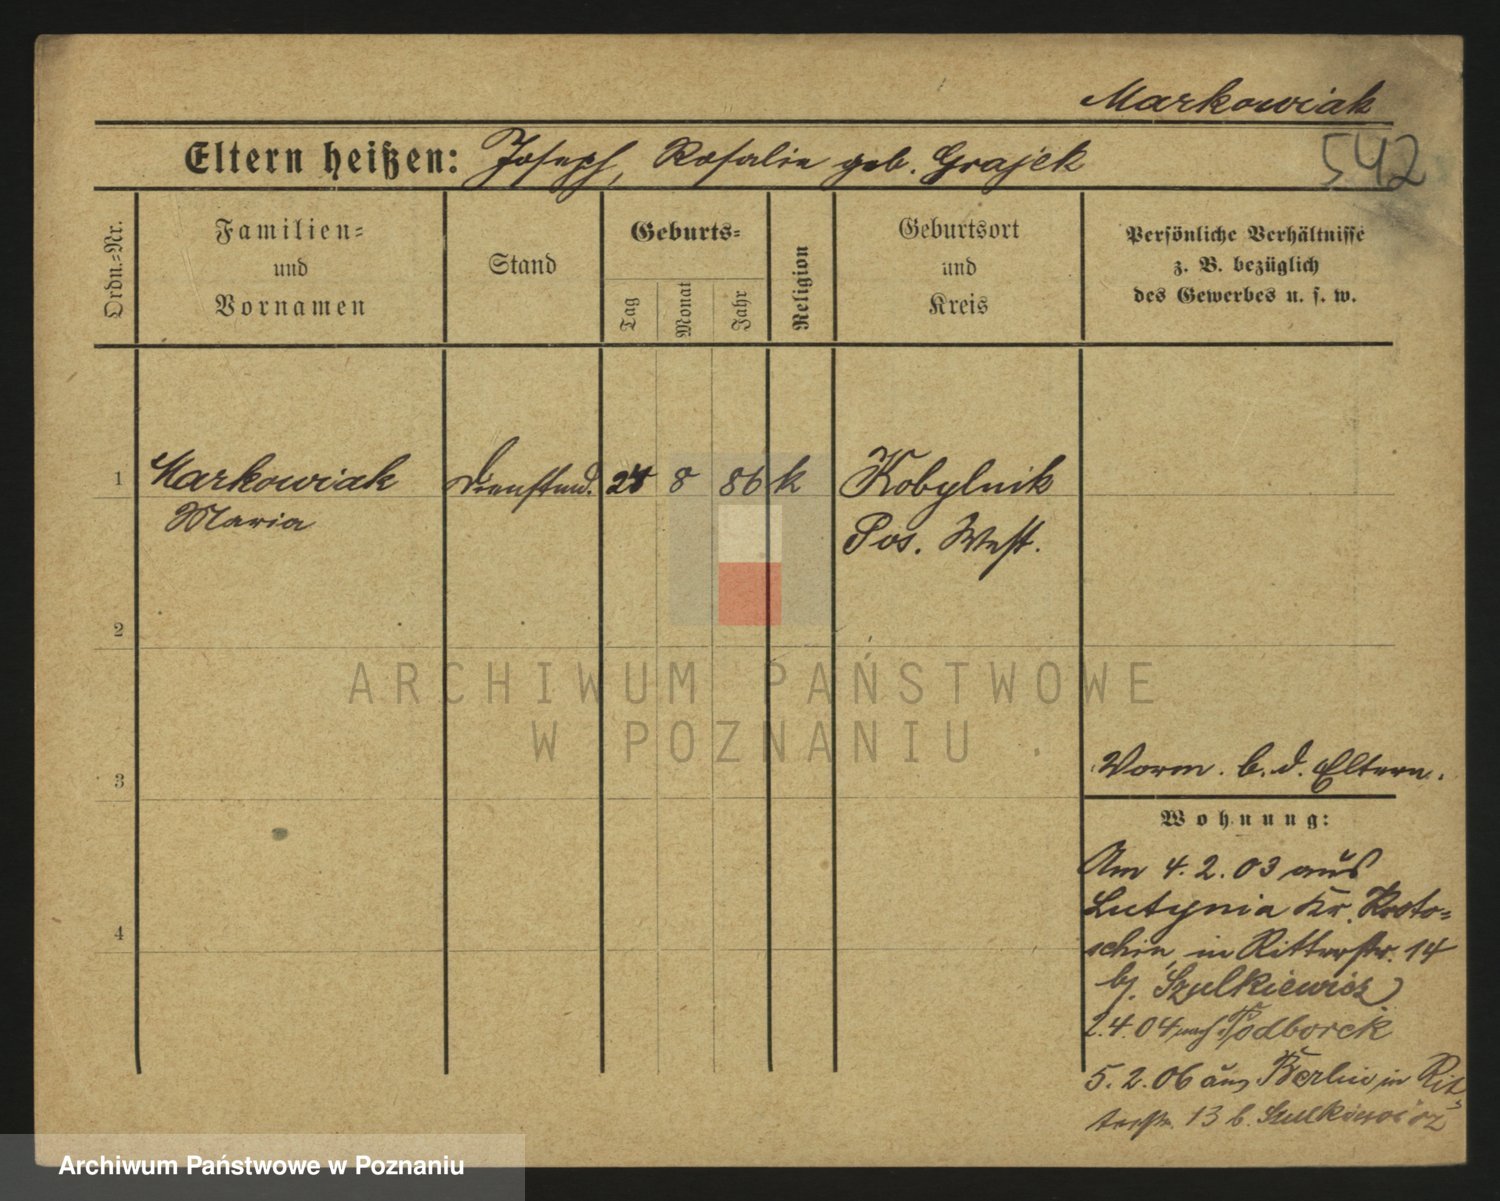 Markowiak
542
Eltern heißen: Joseph, Rosalie geb. Grajek
Ordn.-Nr.
Familien-
und
Vornamen
Stand
Geburts-
Tag
Monat
Jahr
Religion
Geburtsort
und
Kreis
Persönliche Verhältnisse
z. B. bezüglich
des Gewerbes u. s. w.
1 Markowiak Dienstmd. 8 86 k Kobylnik
Maria
Pos. West.
2
ARCHIWUM PAŃSTWOWE
W POZNANIU
3
Vorm. b. d. Eltern.
Wohnung:
Am 4. 2. 03 aus
Lutynia Kr. Kroto-
4
schin, in Ritterstr. 14
bj. Szulkiewicz
2.4.04 nach Podborek
5. 2. 06 aus Berlin in Rit-
terstr. 13 b. Szulkiewicz
Archiwum Państwowe w Poznaniu